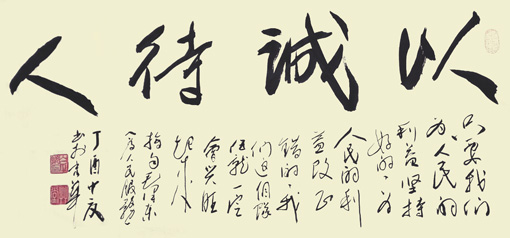 以誠待人
只要我们
为人民的
利益坚持
好的为
人民的利
益改正
错的我
们这個隊
伍就一定
会兴旺
起来
摘句毛泽东
为人民服务
丁酉